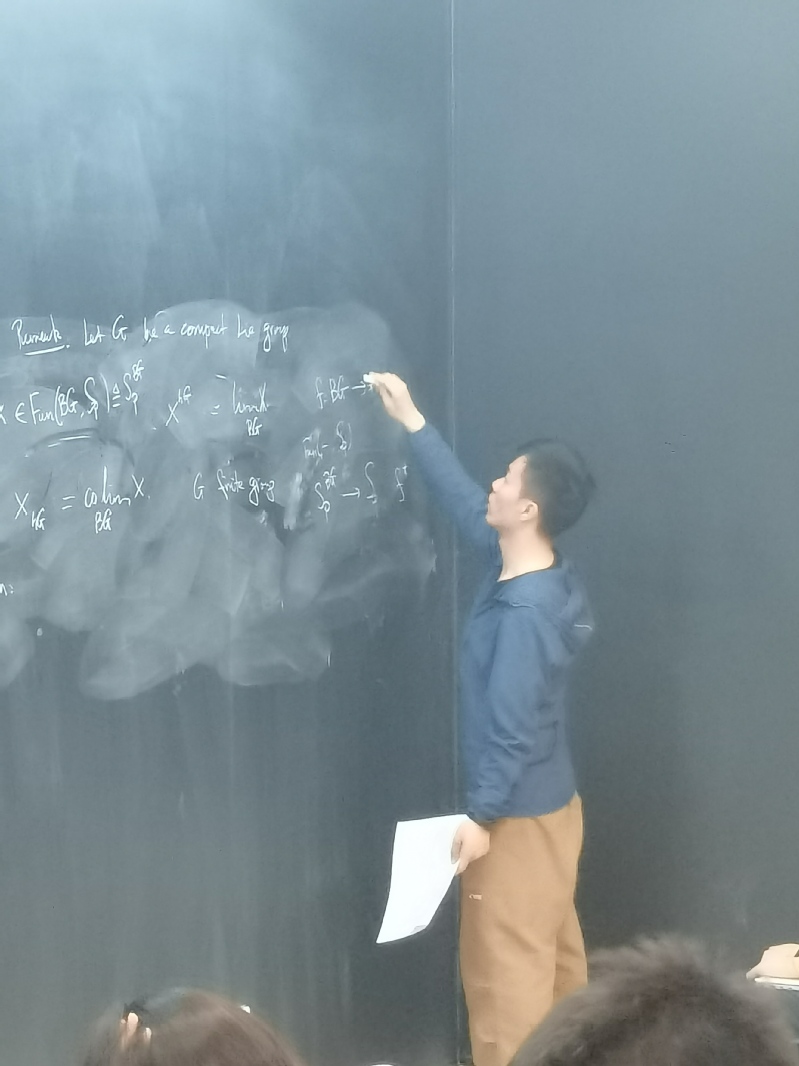 Remark. Let G be a compact Lie group
X ∈ Fun(BG, Sp) ≜ Sp^{BG} X^{hG} = lim_{BG} X f: BG →
Fun(-, Sp)
X_{hG} = colim_{BG} X. G finite group Sp^{BG} → Sp f^*